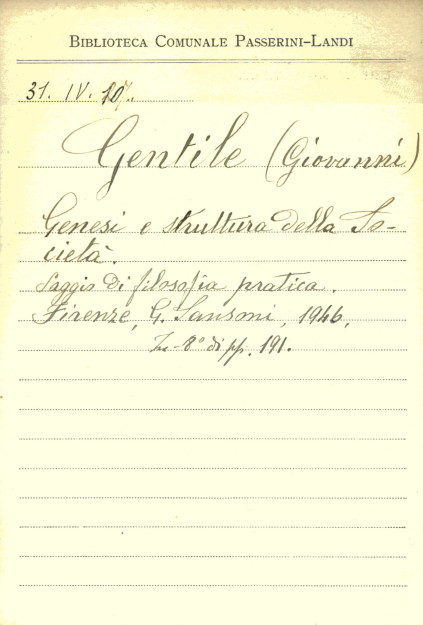 BIBLIOTECA COMUNALE PASSERINI-LANDI
31. IV. 10.
Gentile (Giovanni)
Genesi e struttura della So-
cietà.
Saggio di filosofia pratica.
Firenze, G. Sansoni, 1946,
In-8° di pp. 191.